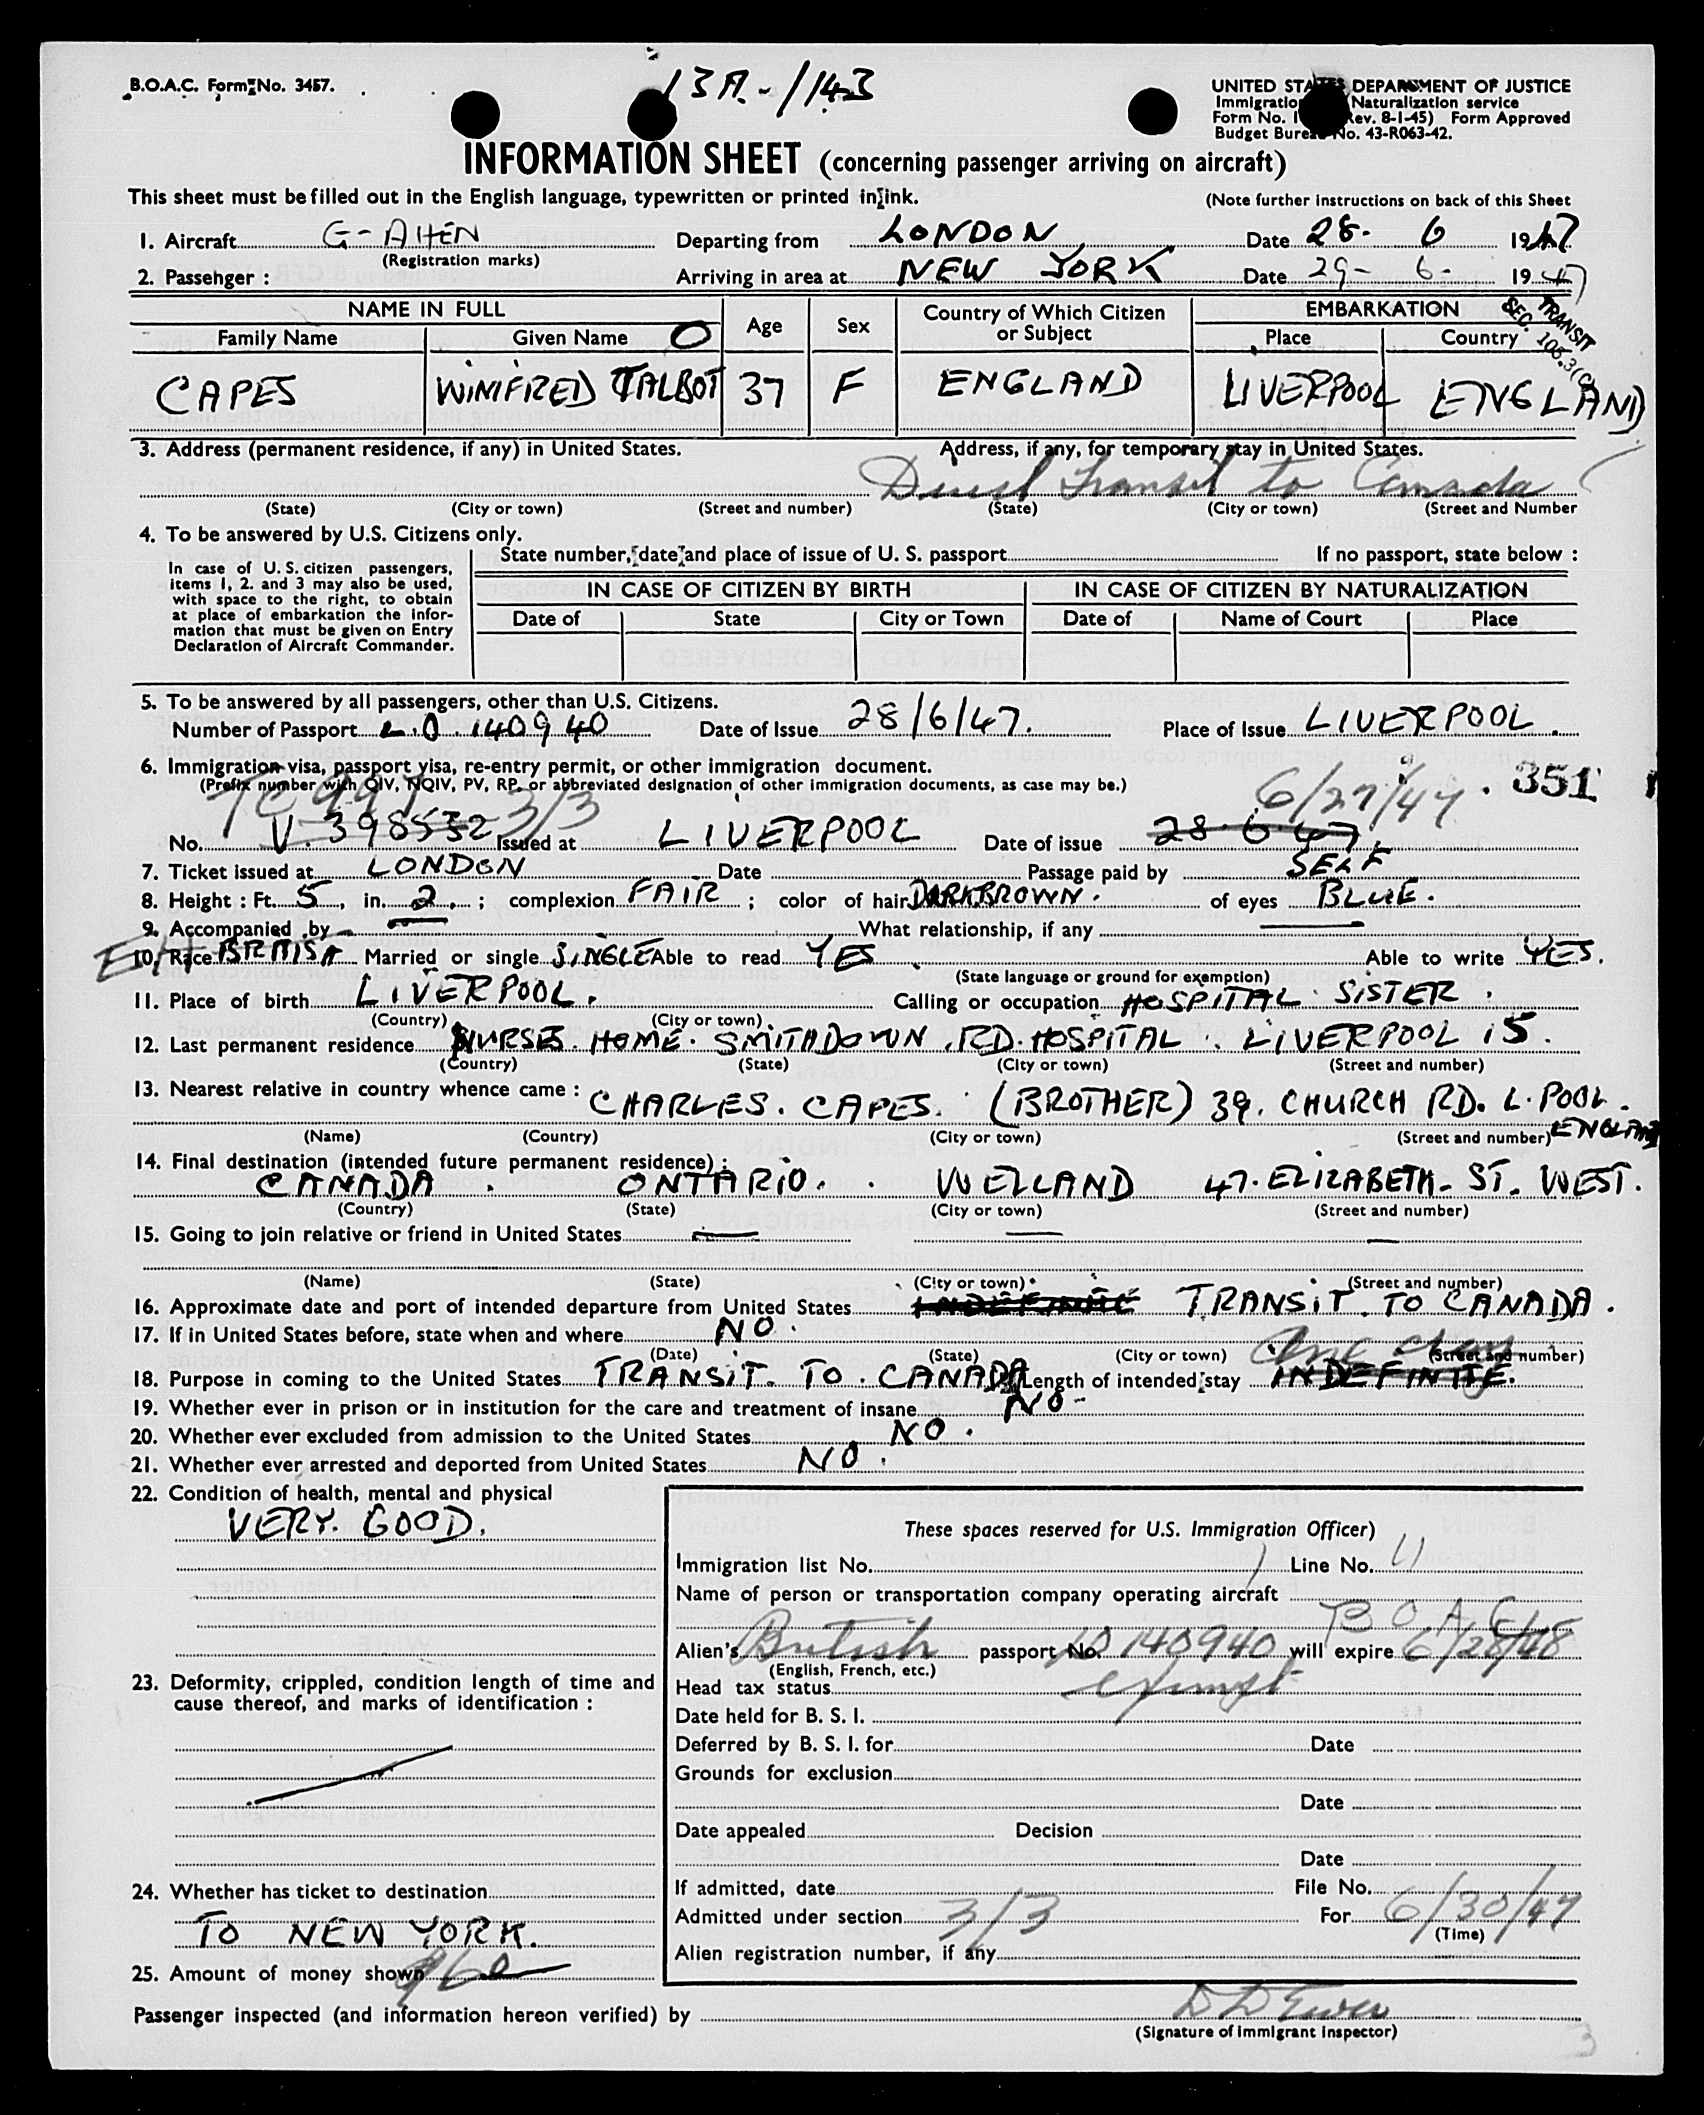 B.O.A.C. Form No. 3457.
13A-1143
UNITED STATES DEPARTMENT OF JUSTICE
Immigration Naturalization service
Form No. I (Rev. 8-1-45) Form Approved
Budget Bureau No. 43-R063-42.
INFORMATION SHEET (concerning passenger arriving on aircraft)
This sheet must be filled out in the English language, typewritten or printed in ink.
(Note further instructions on back of this Sheet
1. Aircraft G-AHEN Departing from LONDON Date 28- 6 1947
(Registration marks)
2. Passenger : Arriving in area at NEW YORK Date 29- 6- 1947
NAME IN FULL Age Sex Country of Which Citizen or Subject EMBARKATION
TRANSIT SEC. 105.3(C)
Family Name Given Name O Place Country
CAPES WINIFRED TALBOT 37 F ENGLAND LIVERPOOL ENGLAND
3. Address (permanent residence, if any) in United States. Address, if any, for temporary stay in United States.
Direct Transit to Canada
(State) (City or town) (Street and number) (State) (City or town) (Street and Number
4. To be answered by U.S. Citizens only.
State number, date and place of issue of U. S. passport If no passport, state below :
In case of U. S. citizen passengers,
items 1, 2. and 3 may also be used,
with space to the right, to obtain
at place of embarkation the infor-
mation that must be given on Entry
Declaration of Aircraft Commander.
IN CASE OF CITIZEN BY BIRTH IN CASE OF CITIZEN BY NATURALIZATION
Date of State City or Town Date of Name of Court Place
5. To be answered by all passengers, other than U.S. Citizens.
Number of Passport L.O. 140940 Date of Issue 28/6/47. Place of Issue LIVERPOOL.
6. Immigration visa, passport visa, re-entry permit, or other immigration document.
(Prefix number with QIV, NQIV, PV, RP, or abbreviated designation of other immigration documents, as case may be.)
TC 997 3/3 6/27/47 . 351
No. V. 398532 Issued at LIVERPOOL Date of issue 28.6.47
7. Ticket issued at LONDON Date Passage paid by SELF
8. Height : Ft. 5, in. 2. ; complexion FAIR ; color of hair DARKBROWN. of eyes BLUE.
9. Accompanied by — What relationship, if any —
10. Race BRITISH Married or single SINGLE Able to read YES Able to write YES.
(State language or ground for exemption)
11. Place of birth LIVERPOOL. Calling or occupation HOSPITAL SISTER.
(Country) (City or town)
12. Last permanent residence NURSES HOME. SMITHDOWN. RD. HOSPITAL. LIVERPOOL 15.
(Country) (State) (City or town) (Street and number)
13. Nearest relative in country whence came : CHARLES. CAPES. (BROTHER) 39. CHURCH RD. L.POOL.
ENGLAND
(Name) (Country) (City or town) (Street and number)
14. Final destination (intended future permanent residence) :
CANADA . ONTARIO. . WELLAND 47. ELIZABETH. ST. WEST.
(Country) (State) (City or town) (Street and number)
15. Going to join relative or friend in United States — — —
(Name) (State) (City or town) (Street and number)
16. Approximate date and port of intended departure from United States INDEFINITE TRANSIT. TO CANADA.
17. If in United States before, state when and where NO.
(Date) (State) (City or town) (Street and number)
One day
18. Purpose in coming to the United States TRANSIT. TO. CANADA Length of intended stay INDEFINTE.
19. Whether ever in prison or in institution for the care and treatment of insane NO-
20. Whether ever excluded from admission to the United States NO.
21. Whether ever arrested and deported from United States NO.
22. Condition of health, mental and physical
VERY. GOOD.
These spaces reserved for U.S. Immigration Officer)
Immigration list No. 1 Line No. 11
Name of person or transportation company operating aircraft
B O A C
Alien's British passport No. LO 140940 will expire 6/28/48
(English, French, etc.)
23. Deformity, crippled, condition length of time and
cause thereof, and marks of identification :
Head tax status exempt
Date held for B. S. I.
Deferred by B. S. I. for Date
Grounds for exclusion
Date
Date appealed Decision
Date
24. Whether has ticket to destination
TO NEW YORK.
If admitted, date File No.
Admitted under section 3/3 For 6/30/47
(Time)
Alien registration number, if any
25. Amount of money shown
Passenger inspected (and information hereon verified) by
(Signature of Immigrant Inspector)
3